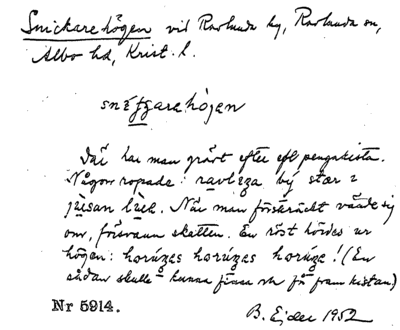 Snickarehögen vid Ravlunda by, Ravlunda sn,
Albo hd, Krist. l.
snéjgarehögen
Där har man grävt efter efl pengakista.
Någon ropade: ravleza bý stær i
jùsan lùe. När man förskräckt vände sig
om, försvann skatten. En röst hördes ur
högen: horúzes horúzes horúze! (En
sådan skulle kunna finna och få fram kistan)
Nr 5914.
B. Ejder 1952